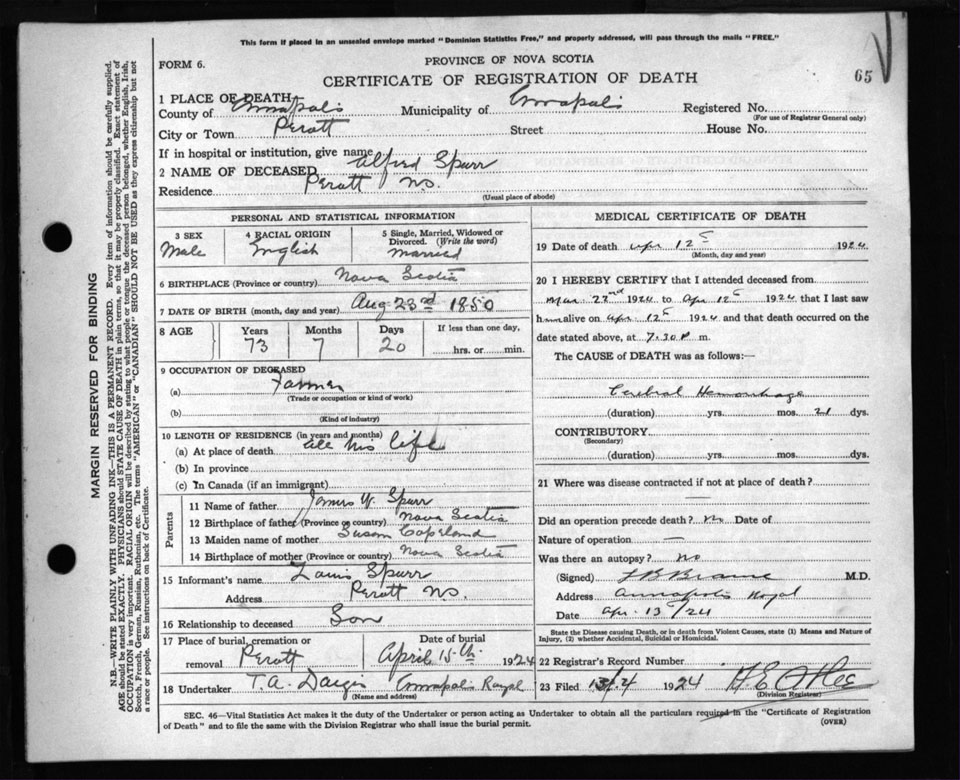 This form if placed in an unsealed envelope marked "Dominion Statistics Free," and properly addressed, will pass through the mails "FREE."
65
FORM 6.
PROVINCE OF NOVA SCOTIA
CERTIFICATE OF REGISTRATION OF DEATH
1 PLACE OF DEATH
County of Annapolis Municipality of Annapolis Registered No.
(For use of Registrar General only)
City or Town Perott Street House No.
If in hospital or institution, give name
2 NAME OF DECEASED Alfred Spurr
Residence Perott N.S.
(Usual place of abode)
PERSONAL AND STATISTICAL INFORMATION
3 SEX 4 RACIAL ORIGIN 5 Single, Married, Widowed or Divorced. (Write the word)
Male English Married
6 BIRTHPLACE (Province or country) Nova Scotia
7 DATE OF BIRTH (month, day and year) Aug 23rd 1850
8 AGE Years Months Days If less than one day,
73 7 20 hrs. or min.
9 OCCUPATION OF DECEASED
(a) Farmer
(Trade or occupation or kind of work)
(b)
(Kind of industry)
10 LENGTH OF RESIDENCE (in years and months)
(a) At place of death all his life
(b) In province
(c) In Canada (if an immigrant)
Parents
11 Name of father James W. Spurr
12 Birthplace of father (Province or country) Nova Scotia
13 Maiden name of mother Susan Copeland
14 Birthplace of mother (Province or country) Nova Scotia
15 Informant's name Louis Spurr
Address Perott N.S.
16 Relationship to deceased Son
17 Place of burial, cremation or removal Perott Date of burial April 15th 1924
18 Undertaker T. A. Annapolis Royal
(Name and address)
MEDICAL CERTIFICATE OF DEATH
19 Date of death Apr 12 1924
(Month, day and year)
20 I HEREBY CERTIFY that I attended deceased from
Mar. 22nd 1924 to Apr. 12 1924 that I last saw
him alive on Apr. 12 1924 and that death occurred on the
date stated above, at 7.30 P m.
The CAUSE of DEATH was as follows:—
Cerebral Hemorrhage
(duration) yrs. mos. 21 dys.
CONTRIBUTORY
(Secondary)
(duration) yrs. mos. dys.
21 Where was disease contracted if not at place of death?
Did an operation precede death? no Date of
Nature of operation —
Was there an autopsy? no
(Signed) M.D.
Address Annapolis Royal
Date Apr. 13/24
State the Disease causing Death, or in death from Violent Causes, state (1) Means and Nature of
Injury, (2) whether Accidental, Suicidal or Homicidal.
22 Registrar's Record Number
23 Filed 1924
(Division Registrar)
SEC. 46—Vital Statistics Act makes it the duty of the Undertaker or person acting as Undertaker to obtain all the particulars required in the "Certificate of Registration
of Death" and to file the same with the Division Registrar who shall issue the burial permit.
(OVER)
MARGIN RESERVED FOR BINDING
N.B.—WRITE PLAINLY WITH UNFADING INK—THIS IS A PERMANENT RECORD. Every item of information should be carefully supplied.
AGE should be stated EXACTLY. PHYSICIANS should STATE CAUSE OF DEATH in plain terms, so that it may be properly classified. Exact statement of
OCCUPATION is very important. RACIAL ORIGIN will be described by stating to what people or tongue the deceased person belonged, whether English, Irish,
Scotch, French, German, Russian, Ruthenian, etc. The terms "AMERICAN" or "CANADIAN" SHOULD NOT BE USED as they express citizenship but not
a race or people. See instructions on back of Certificate.